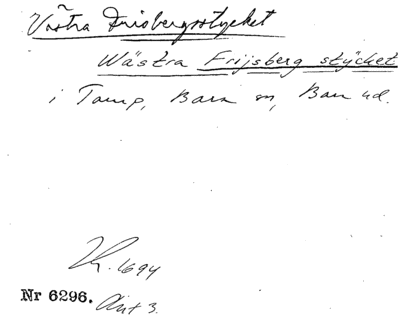 Västra Frisbergsstycket
Wästra Frijsberg stÿcket
i Tomp, Bara sn, Bara hd.
K. 1694
Nr 6296. Akt 3.